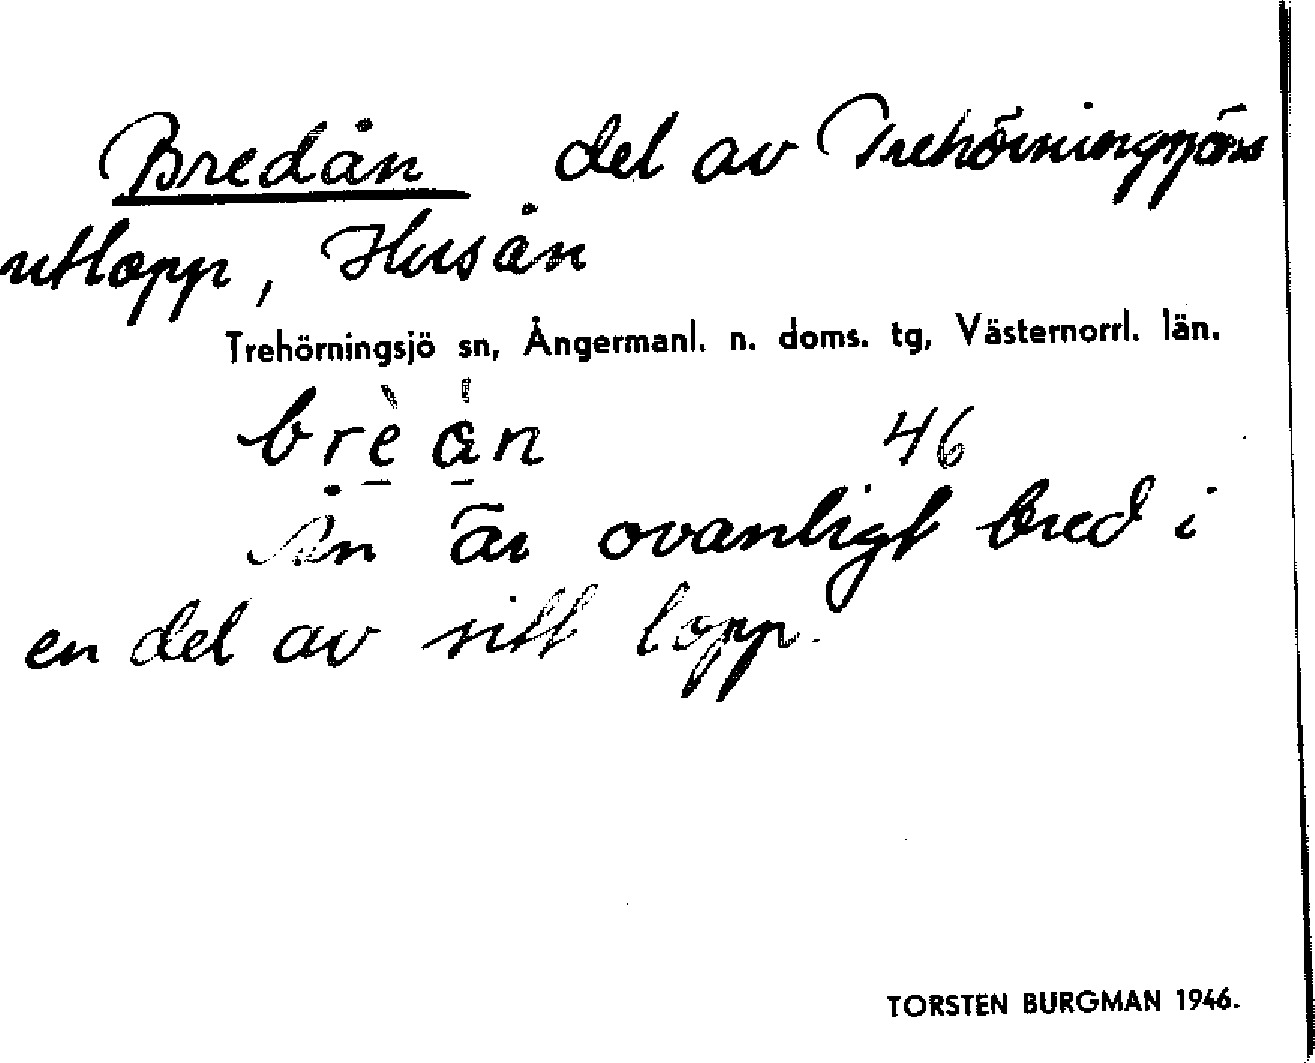 Bredån del av Trehörningsjöns
utlopp, Husån
Trehörningsjö sn, Ångermanl. n. doms. tg, Västernorrl. län.
brè án 46
Ån är ovanligt bred i
en del av sitt lopp.
TORSTEN BURGMAN 1946.